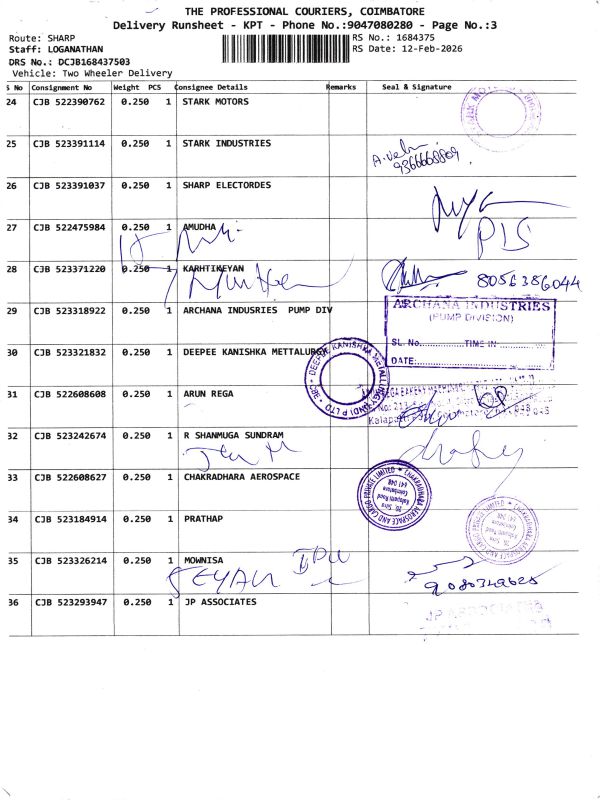 THE PROFESSIONAL COURIERS, COIMBATORE
Delivery Runsheet - KPT - Phone No.:9047080280 - Page No.:3
Route: SHARP
Staff: LOGANATHAN
DRS No.: DCJB168437503
Vehicle: Two Wheeler Delivery
RS No.: 1684375
RS Date: 12-Feb-2026
S No Consignment No Weight PCS Consignee Details Remarks Seal & Signature
24 CJB 522390762 0.250 1 STARK MOTORS
25 CJB 523391114 0.250 1 STARK INDUSTRIES
26 CJB 523391037 0.250 1 SHARP ELECTORDES
27 CJB 522475984 0.250 1 AMUDHA
28 CJB 523371220 0.250 1 KARHTIKEYAN
8056386044
29 CJB 523318922 0.250 1 ARCHANA INDUSRIES PUMP DIV
ARCHANA INDUSTRIES
(PUMP DIVISION)
SL. No. TIME IN
DATE:
30 CJB 523321832 0.250 1 DEEPEE KANISHKA METTALURGY
31 CJB 522608608 0.250 1 ARUN REGA
32 CJB 523242674 0.250 1 R SHANMUGA SUNDRAM
33 CJB 522608627 0.250 1 CHAKRADHARA AEROSPACE
CHAKRADHARA AEROSPACE AND CARGO PRIVATE LIMITED
34 CJB 523184914 0.250 1 PRATHAP
35 CJB 523326214 0.250 1 MOWNISA
36 CJB 523293947 0.250 1 JP ASSOCIATES
JP ASSOCIATES